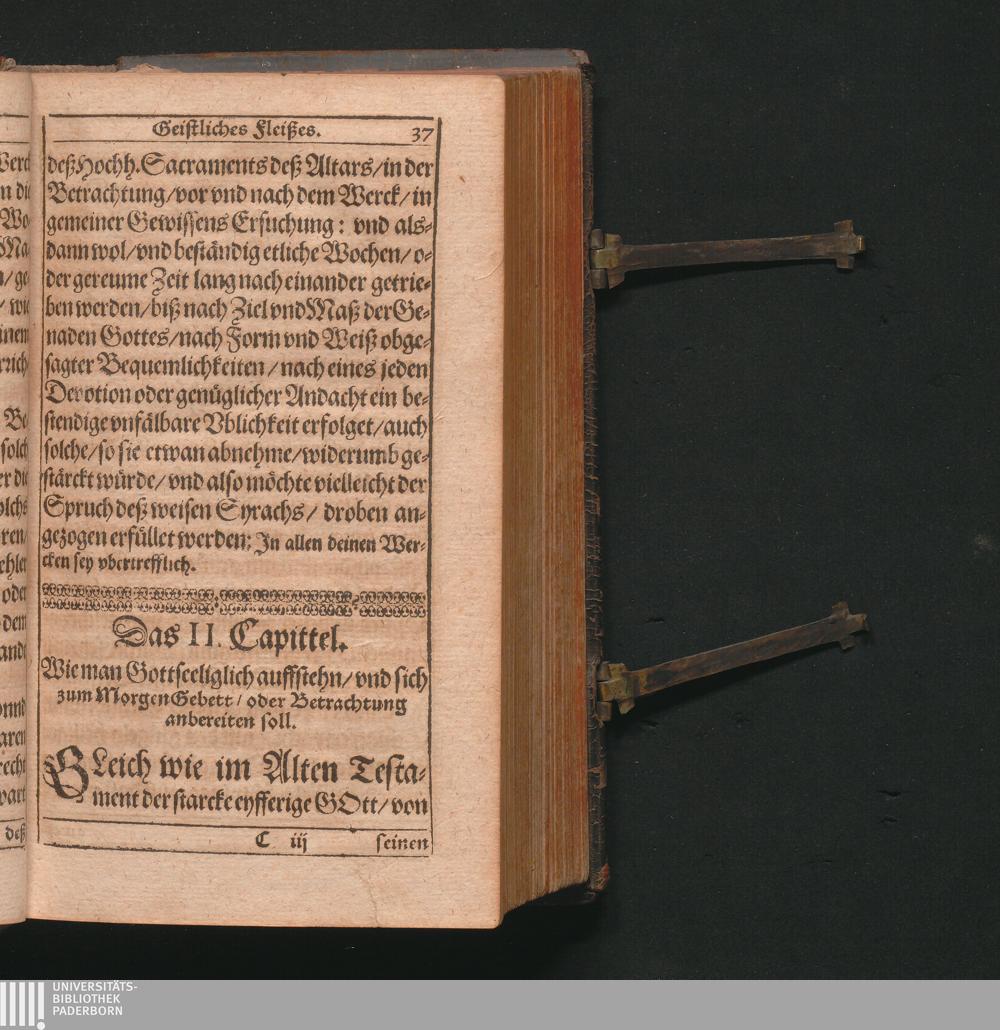 Geistliches Fleißes. 37
deß Hochh. Sacraments deß Altars/ in der
Betrachtung/ vor vnd nach dem Werck/ in
gemeiner Gewissens Ersuchung: vnd als-
dann wol/ vnd beständig etliche Wochen/ o-
der gereume Zeit lang nach einander getrie-
ben werden/ biß nach Ziel vnd Maß der Ge-
naden Gottes/ nach Form vnd Weiß obge-
sagter Bequemlichkeiten/ nach eines jeden
Devotion oder genüglicher Andacht ein be-
stendige vnfälbare Vblichkeit erfolget/ auch
solche/ so sie etwan abnehme/ widerumb ge-
stärckt würde/ vnd also möchte vielleicht der
Spruch deß weisen Syrachs/ droben an-
gezogen erfüllet werden: In allen deinen Wer-
cken sey vbertrefflich.
Das II. Capittel.
Wie man Gottseeliglich auffstehn/ vnd sich
zum Morgen Gebett/ oder Betrachtung
anbereiten soll.
GLeich wie im Alten Testa-
ment der starcke eyfferige GOtt/ von
C iij seinen
UNIVERSITÄTS-
BIBLIOTHEK
PADERBORN